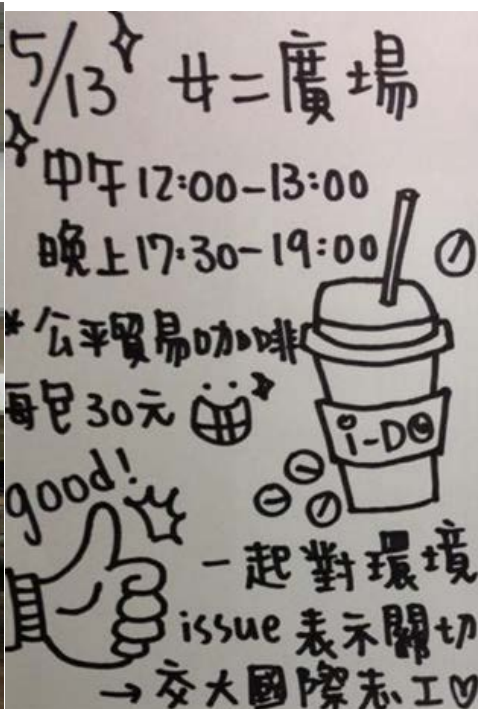 5/13 廿二廣場
中午12:00-13:00
晚上17:30-19:00
*公平貿易咖啡
每包30元
i-DO
good!
一起對環境
issue 表示關切
→交大國際志工♡